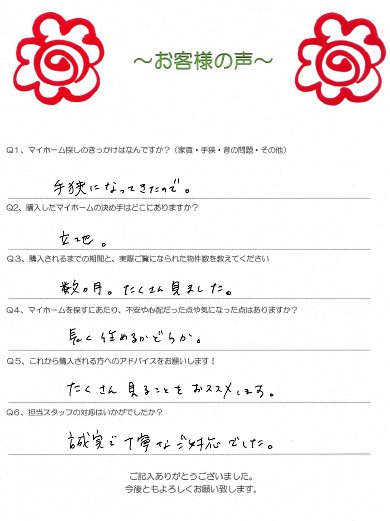 ～お客様の声～
Q1、マイホーム探しのきっかけはなんですか？（家賃・手狭・音の問題・その他）
手狭になってきたので。
Q2、購入したマイホームの決め手はどこにありますか？
立地。
Q3、購入されるまでの期間と、実際ご覧になられた物件数を教えてください
数ヶ月。たくさん見ました。
Q4、マイホームを探すにあたり、不安や心配だった点や気になった点はありますか？
長く住めるかどうか。
Q5、これから購入される方へのアドバイスをお願いします！
たくさん見ることをおススメします。
Q6、担当スタッフの対応はいかがでしたか？
誠実で丁寧なご対応でした。
ご記入ありがとうございました。
今後ともよろしくお願い致します。